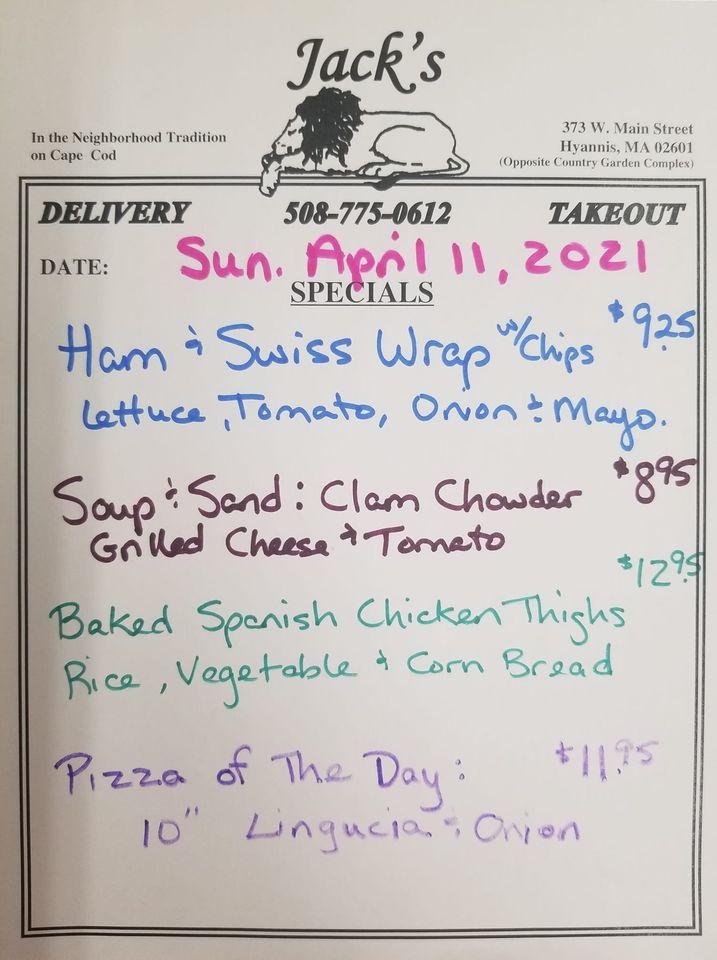 Jack's
In the Neighborhood Tradition
on Cape Cod
373 W. Main Street
Hyannis, MA 02601
(Opposite Country Garden Complex)
DELIVERY 508-775-0612 TAKEOUT
DATE: Sun. April 11, 2021
SPECIALS
Ham & Swiss Wrap w/Chips $9.25
Lettuce, Tomato, Onion & Mayo.
Soup & Sand: Clam Chowder $8.95
Grilled Cheese & Tomato
$12.95
Baked Spanish Chicken Thighs
Rice, Vegetable & Corn Bread
Pizza of The Day: $11.95
10" Lingucia & Onion